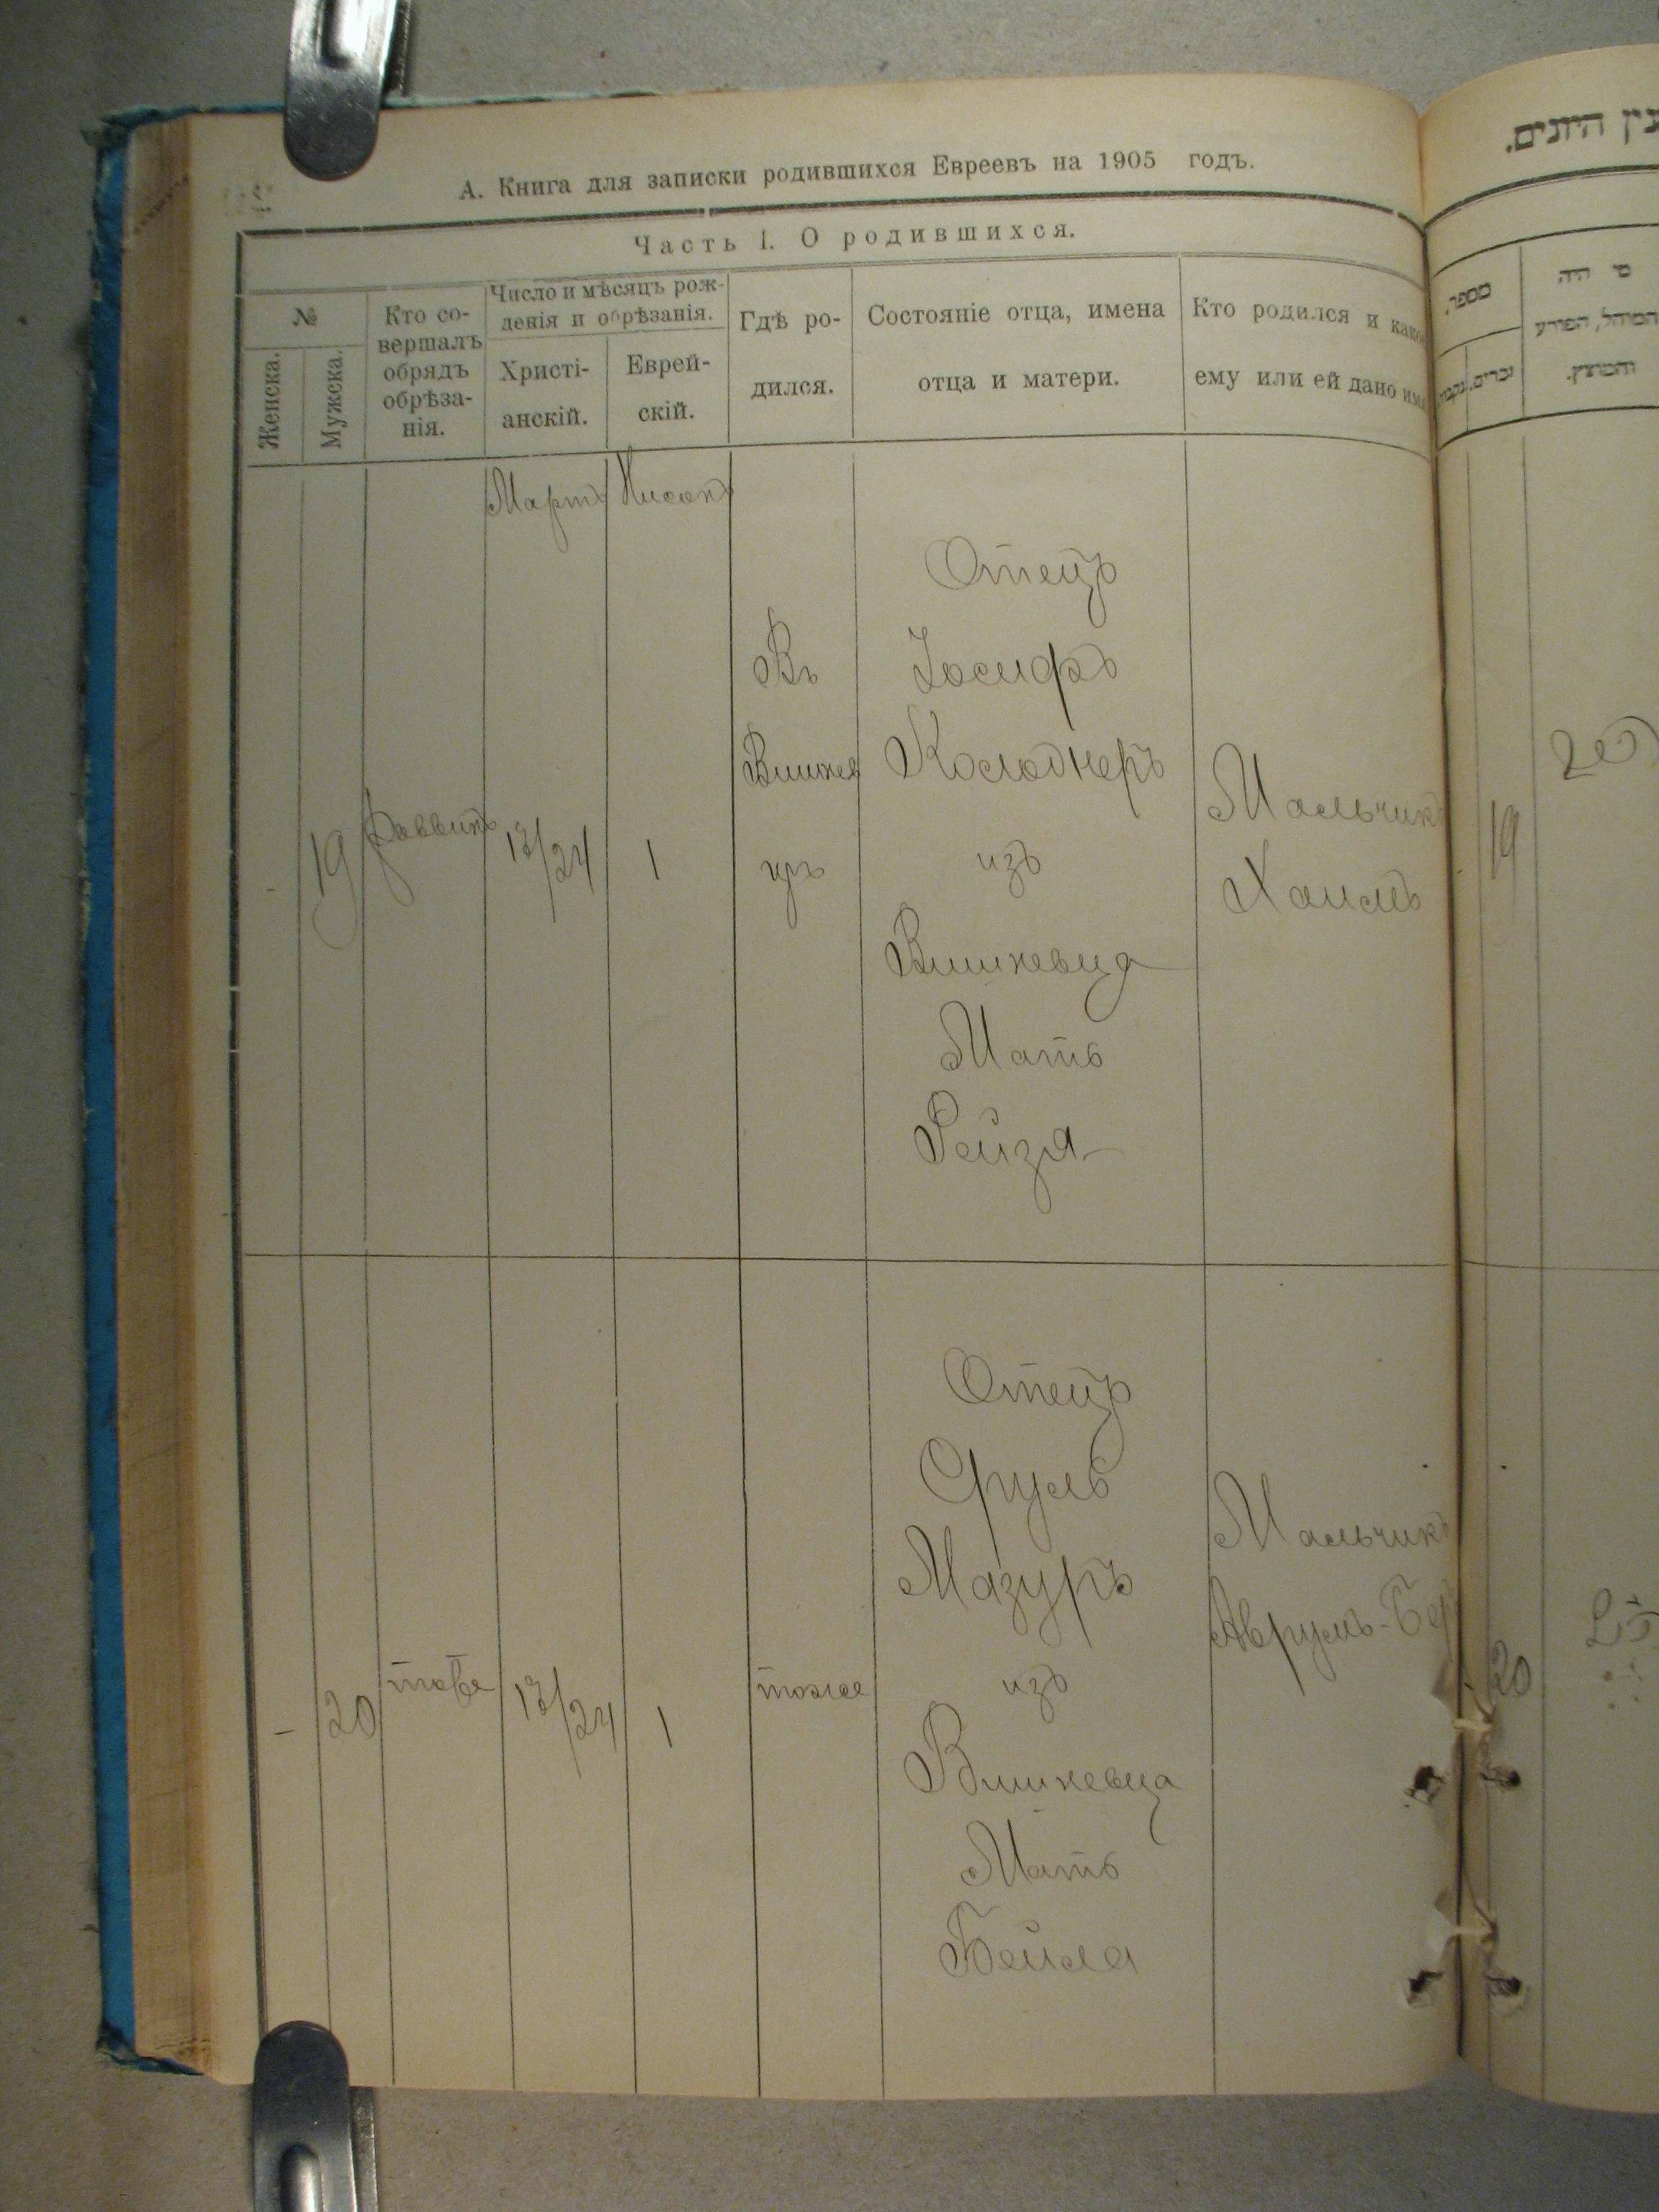 А. Книга для записки родившихся Евреевъ на 1905 годъ.
Часть І. О родившихся.
№
Женска.
Мужска.
Кто со-
вершалъ
обрядъ
обрѣза-
нія.
Число и мѣсяцъ рож-
денія и обрѣзанія.
Христі-
анскій.
Еврей-
скій.
Гдѣ ро-
дился.
Состояніе отца, имена
отца и матери.
Кто родился и како
ему или ей дано им
Мартъ
Нисонъ
-
19
Раввинъ
12/24
1
Въ
Вишнев
цѣ
Отецъ
Іосифъ
Колоднеръ
изъ
Вишневца
Мать
Рейзя
Мальчикъ
Хаимъ
-
20
тоже
12/24
1
тоже
Отецъ
Сруль
Мазуръ
изъ
Вишневца
Мать
Бейла
Мальчикъ
Аврумъ-Бер
נין היונים.
מספר.
נקבו
זכרים.
מי היה
המוהל, הפורע
והמוצץ.
19
20